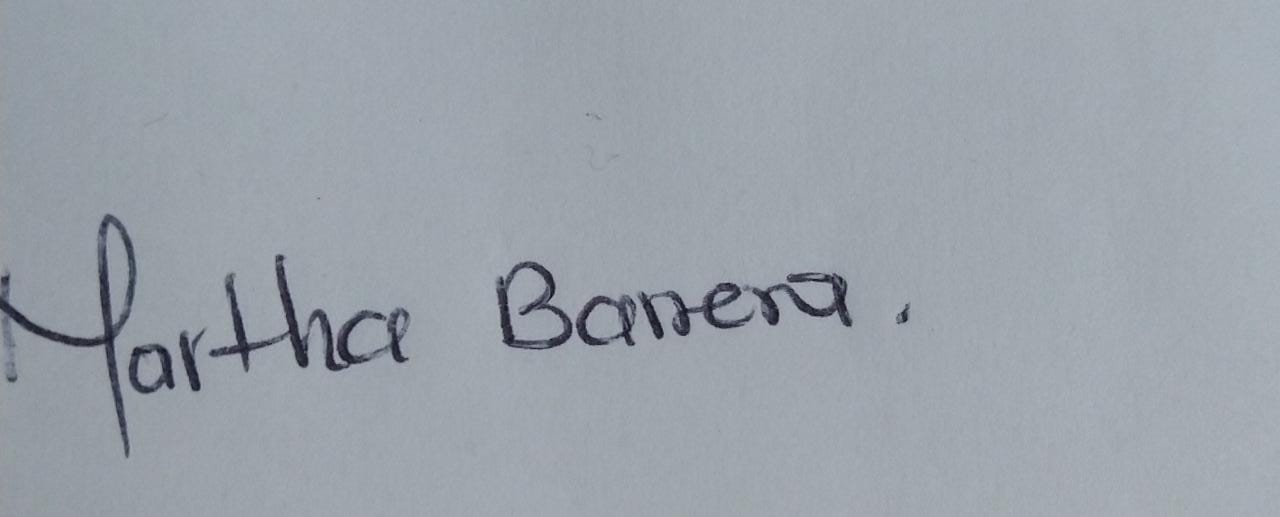 Martha Barrera.